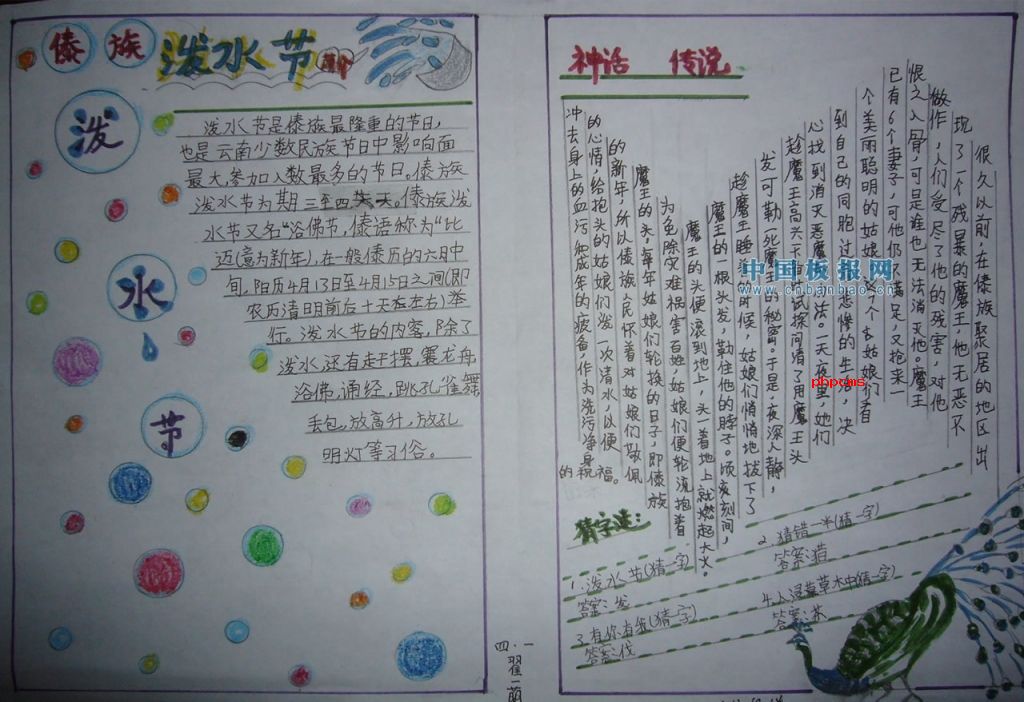 傣族
泼水节
泼
水
节
泼水节是傣族最隆重的节日,
也是云南少数民族节日中影响面
最大,参加人数最多的节日。傣族
泼水节为期三至四天。傣族泼
水节又名"浴佛节,傣语称为"比
迈(意为新年),在一般傣历的六月中
旬,阳历4月13日至4月15日之间(即
农历清明前后十天左右)举
行。泼水节的内容,除了
泼水,还有赶摆,赛龙舟,
浴佛,诵经,跳孔雀舞,
丢包,放高升,放孔
明灯等习俗。
神话 传说
很久以前,在傣族聚居的地区出
现了一个残暴的魔王,他无恶不
做作,人们受尽了他的残害,对他
恨之入骨,可是谁也无法消灭他。魔王
已有6个妻子,可他仍不满足,又抢来一
个美丽聪明的姑娘。
到自己的同胞过着悲惨的生活,决
心找到消灭恶魔的办法。一天夜里,她们
趁魔王高兴
试探问清了用魔王头
发可勒死魔王的秘密。于是,夜深人静,
趁魔王睡
的时候,姑娘们悄悄地拔下了
魔王的一根头发,勒住他的脖子。顷刻间,
魔王的头便滚到地上,头一着地上就燃起大火。
为免除灾难祸害百姓,姑娘们便轮流抱着
魔王的头,每年姑娘们轮换的日子,即傣族
的新年,所以傣族人民怀着对姑娘们敬佩
的心情,给抱头的姑娘们泼一次清水,以便
冲去身上的血污和成年的疲备,作为洗污净身
的祝福。
猜字迷:
1.泼水节(猜一字)
答案:发
2.猜错一半(猜一字)
答案:猎
3.有你有我(猜字)
答案:伐
4.人浸草木中(猜一字)
答案:茶
四·一
翟一萌
中国板报网
www.cnbanbao.cn
phpcms